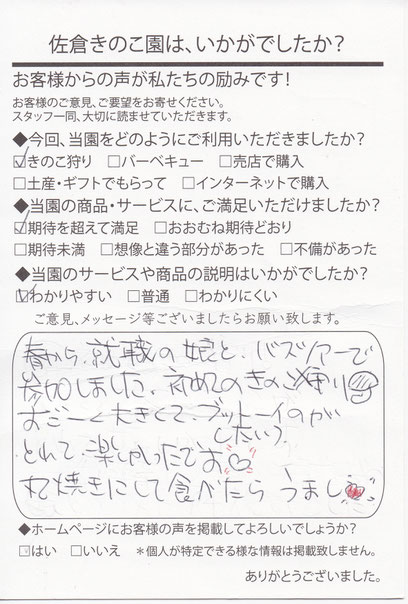 佐倉きのこ園は、いかがでしたか?
お客様からの声が私たちの励みです!
お客様のご意見、ご要望をお寄せください。
スタッフ一同、大切に読ませていただきます。
◆今回、当園をどのようにご利用いただきましたか?
☑きのこ狩り □バーベキュー □売店で購入
□土産・ギフトでもらって □インターネットで購入
◆当園の商品・サービスに、ご満足いただけましたか?
☑期待を超えて満足 □おおむね期待どおり
□期待未満 □想像と違う部分があった □不備があった
◆当園のサービスや商品の説明はいかがでしたか?
☑わかりやすい □普通 □わかりにくい
ご意見、メッセージ等ございましたらお願い致します。
春から、就職の娘と、バスツアーで
参加しました。初めてのきのこ狩り
すごーく大きくて、ブットーイのが
したいっ。
とれて、楽しかったです♡
丸焼きにして食べたら うまし
◆ホームページにお客様の声を掲載してよろしいでしょうか?
☑はい □いいえ *個人が特定できる様な情報は掲載致しません。
ありがとうございました。